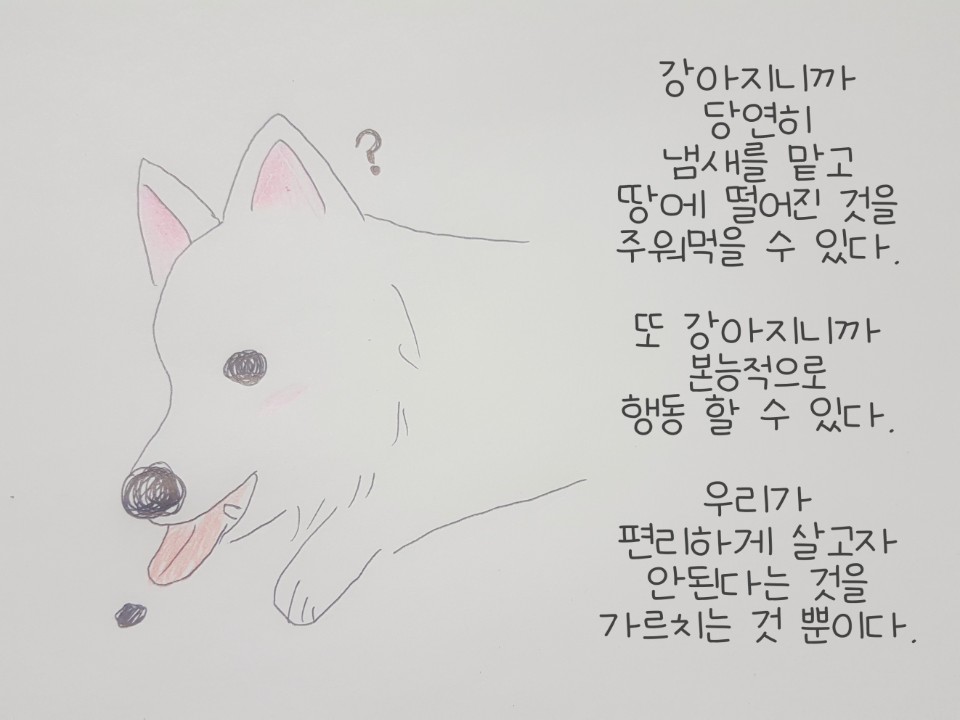 ?
강아지니까
당연히
냄새를 맡고
땅에 떨어진 것을
주워먹을 수 있다.
또 강아지니까
본능적으로
행동 할 수 있다.
우리가
편리하게 살고자
안된다는 것을
가르치는 것 뿐이다.